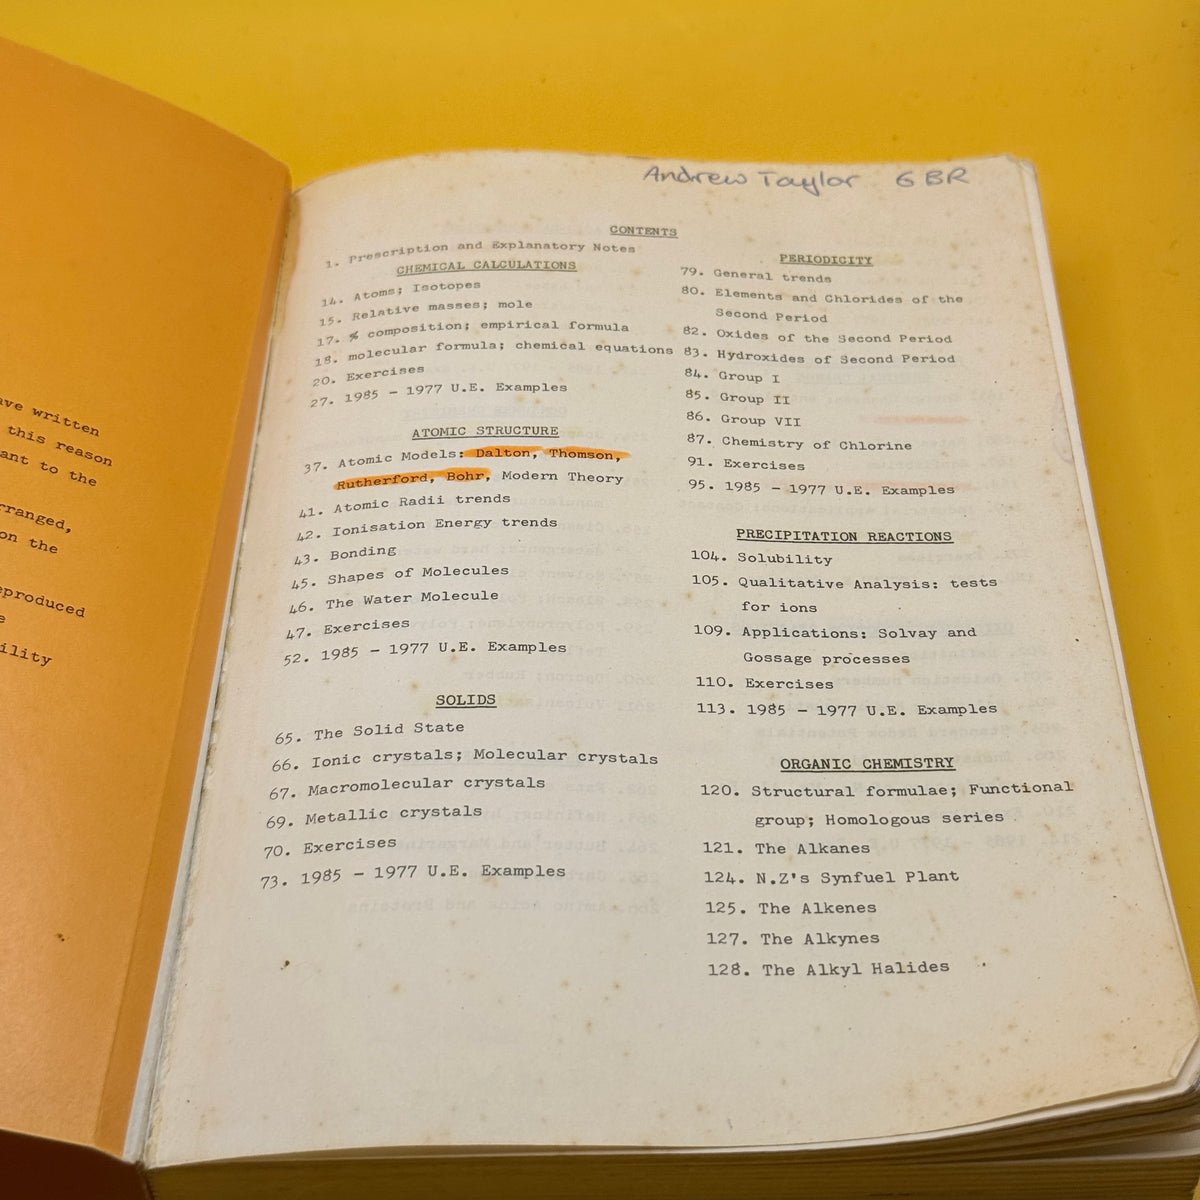 ave written
this reason
ant to the
rranged,
on the
eproduced
e
ility
Andrew Taylor 6 BR
CONTENTS
1. Prescription and Explanatory Notes
CHEMICAL CALCULATIONS
14. Atoms; Isotopes
15. Relative masses; mole
17. % composition; empirical formula
18. molecular formula; chemical equations
20. Exercises
27. 1985 - 1977 U.E. Examples
ATOMIC STRUCTURE
37. Atomic Models: Dalton, Thomson,
Rutherford, Bohr, Modern Theory
41. Atomic Radii trends
42. Ionisation Energy trends
43. Bonding
45. Shapes of Molecules
46. The Water Molecule
47. Exercises
52. 1985 - 1977 U.E. Examples
SOLIDS
65. The Solid State
66. Ionic crystals; Molecular crystals
67. Macromolecular crystals
69. Metallic crystals
70. Exercises
73. 1985 - 1977 U.E. Examples
PERIODICITY
79. General trends
80. Elements and Chlorides of the
Second Period
82. Oxides of the Second Period
83. Hydroxides of Second Period
84. Group I
85. Group II
86. Group VII
87. Chemistry of Chlorine
91. Exercises
95. 1985 - 1977 U.E. Examples
PRECIPITATION REACTIONS
104. Solubility
105. Qualitative Analysis: tests
for ions
109. Applications: Solvay and
Gossage processes
110. Exercises
113. 1985 - 1977 U.E. Examples
ORGANIC CHEMISTRY
120. Structural formulae; Functional
group; Homologous series
121. The Alkanes
124. N.Z's Synfuel Plant
125. The Alkenes
127. The Alkynes
128. The Alkyl Halides